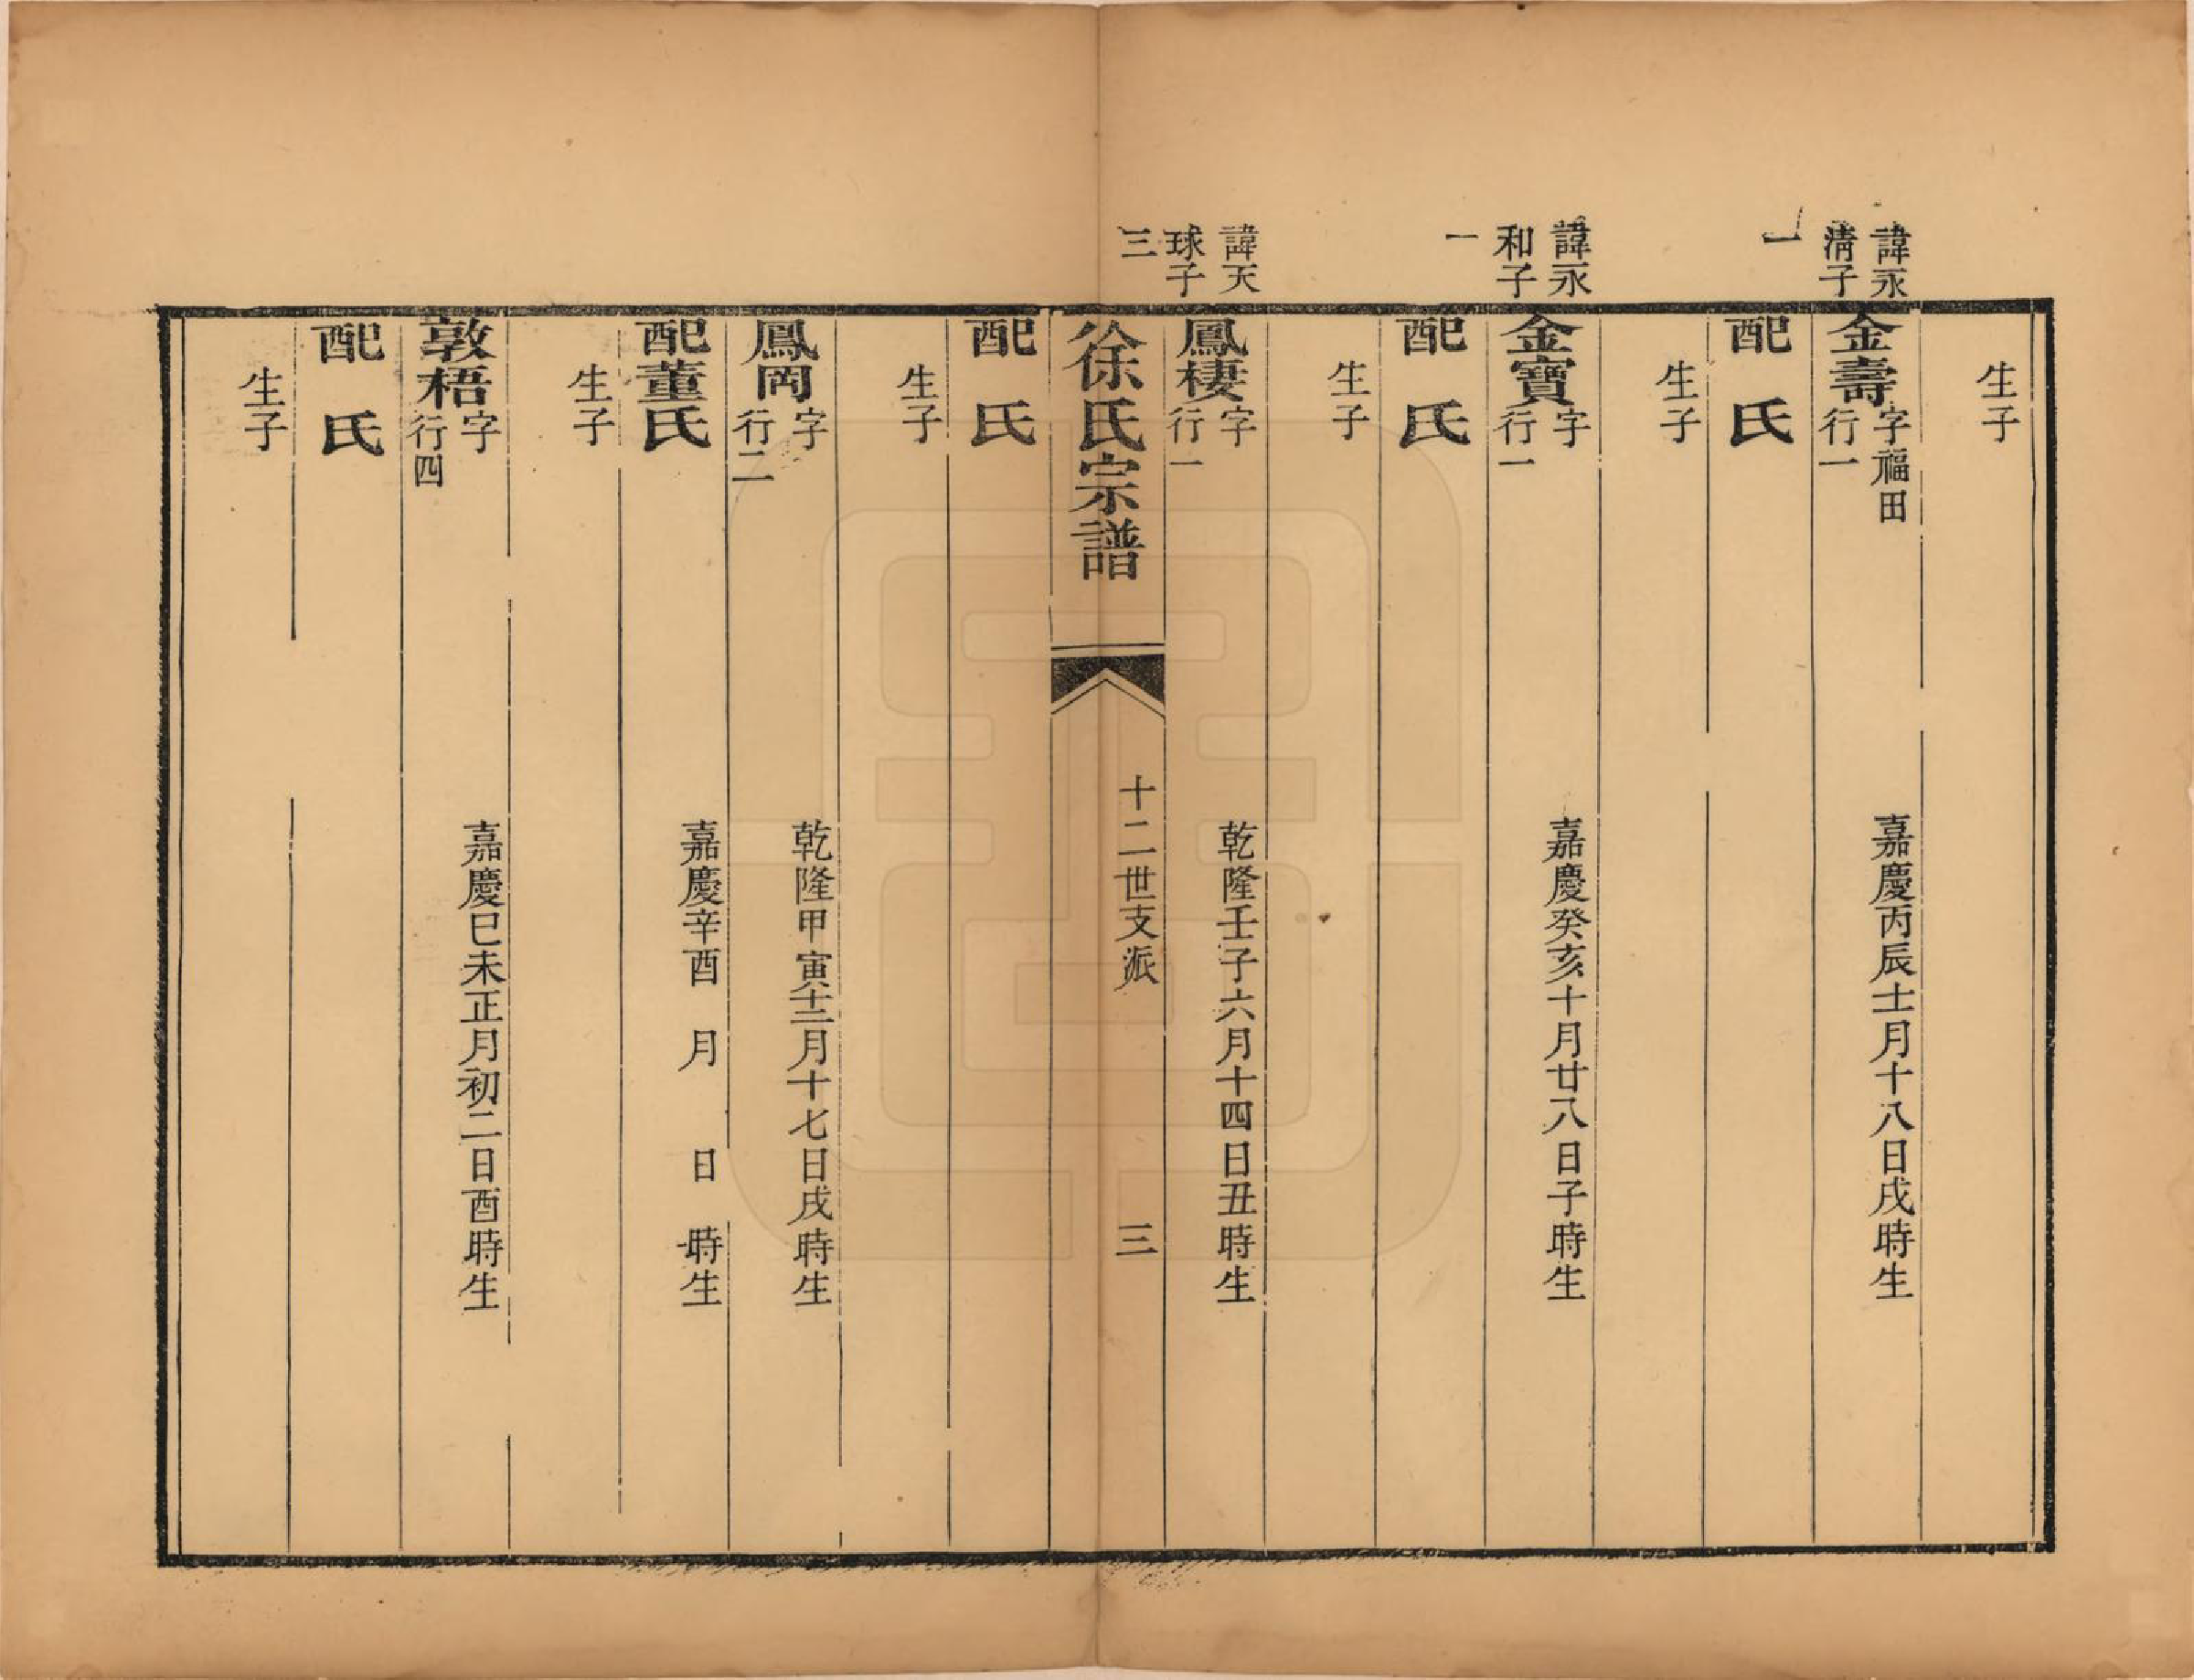 生子
諱永
清子
一
金壽
字福田
行一
嘉慶丙辰十一月十八日戌時生
配　氏
生子
諱永
和子
一
金寶
字
行一
嘉慶癸亥十月廿八日子時生
配　氏
生子
諱天
球子
三
鳳棲
字
行一
乾隆壬子六月十四日丑時生
徐氏宗譜
十二世支派
三
配　氏
生子
鳳岡
字
行二
乾隆甲寅十二月十七日戌時生
配董氏
嘉慶辛酉　月　日　時生
生子
敦梧
字
行四
嘉慶已未正月初二日酉時生
配　氏
生子